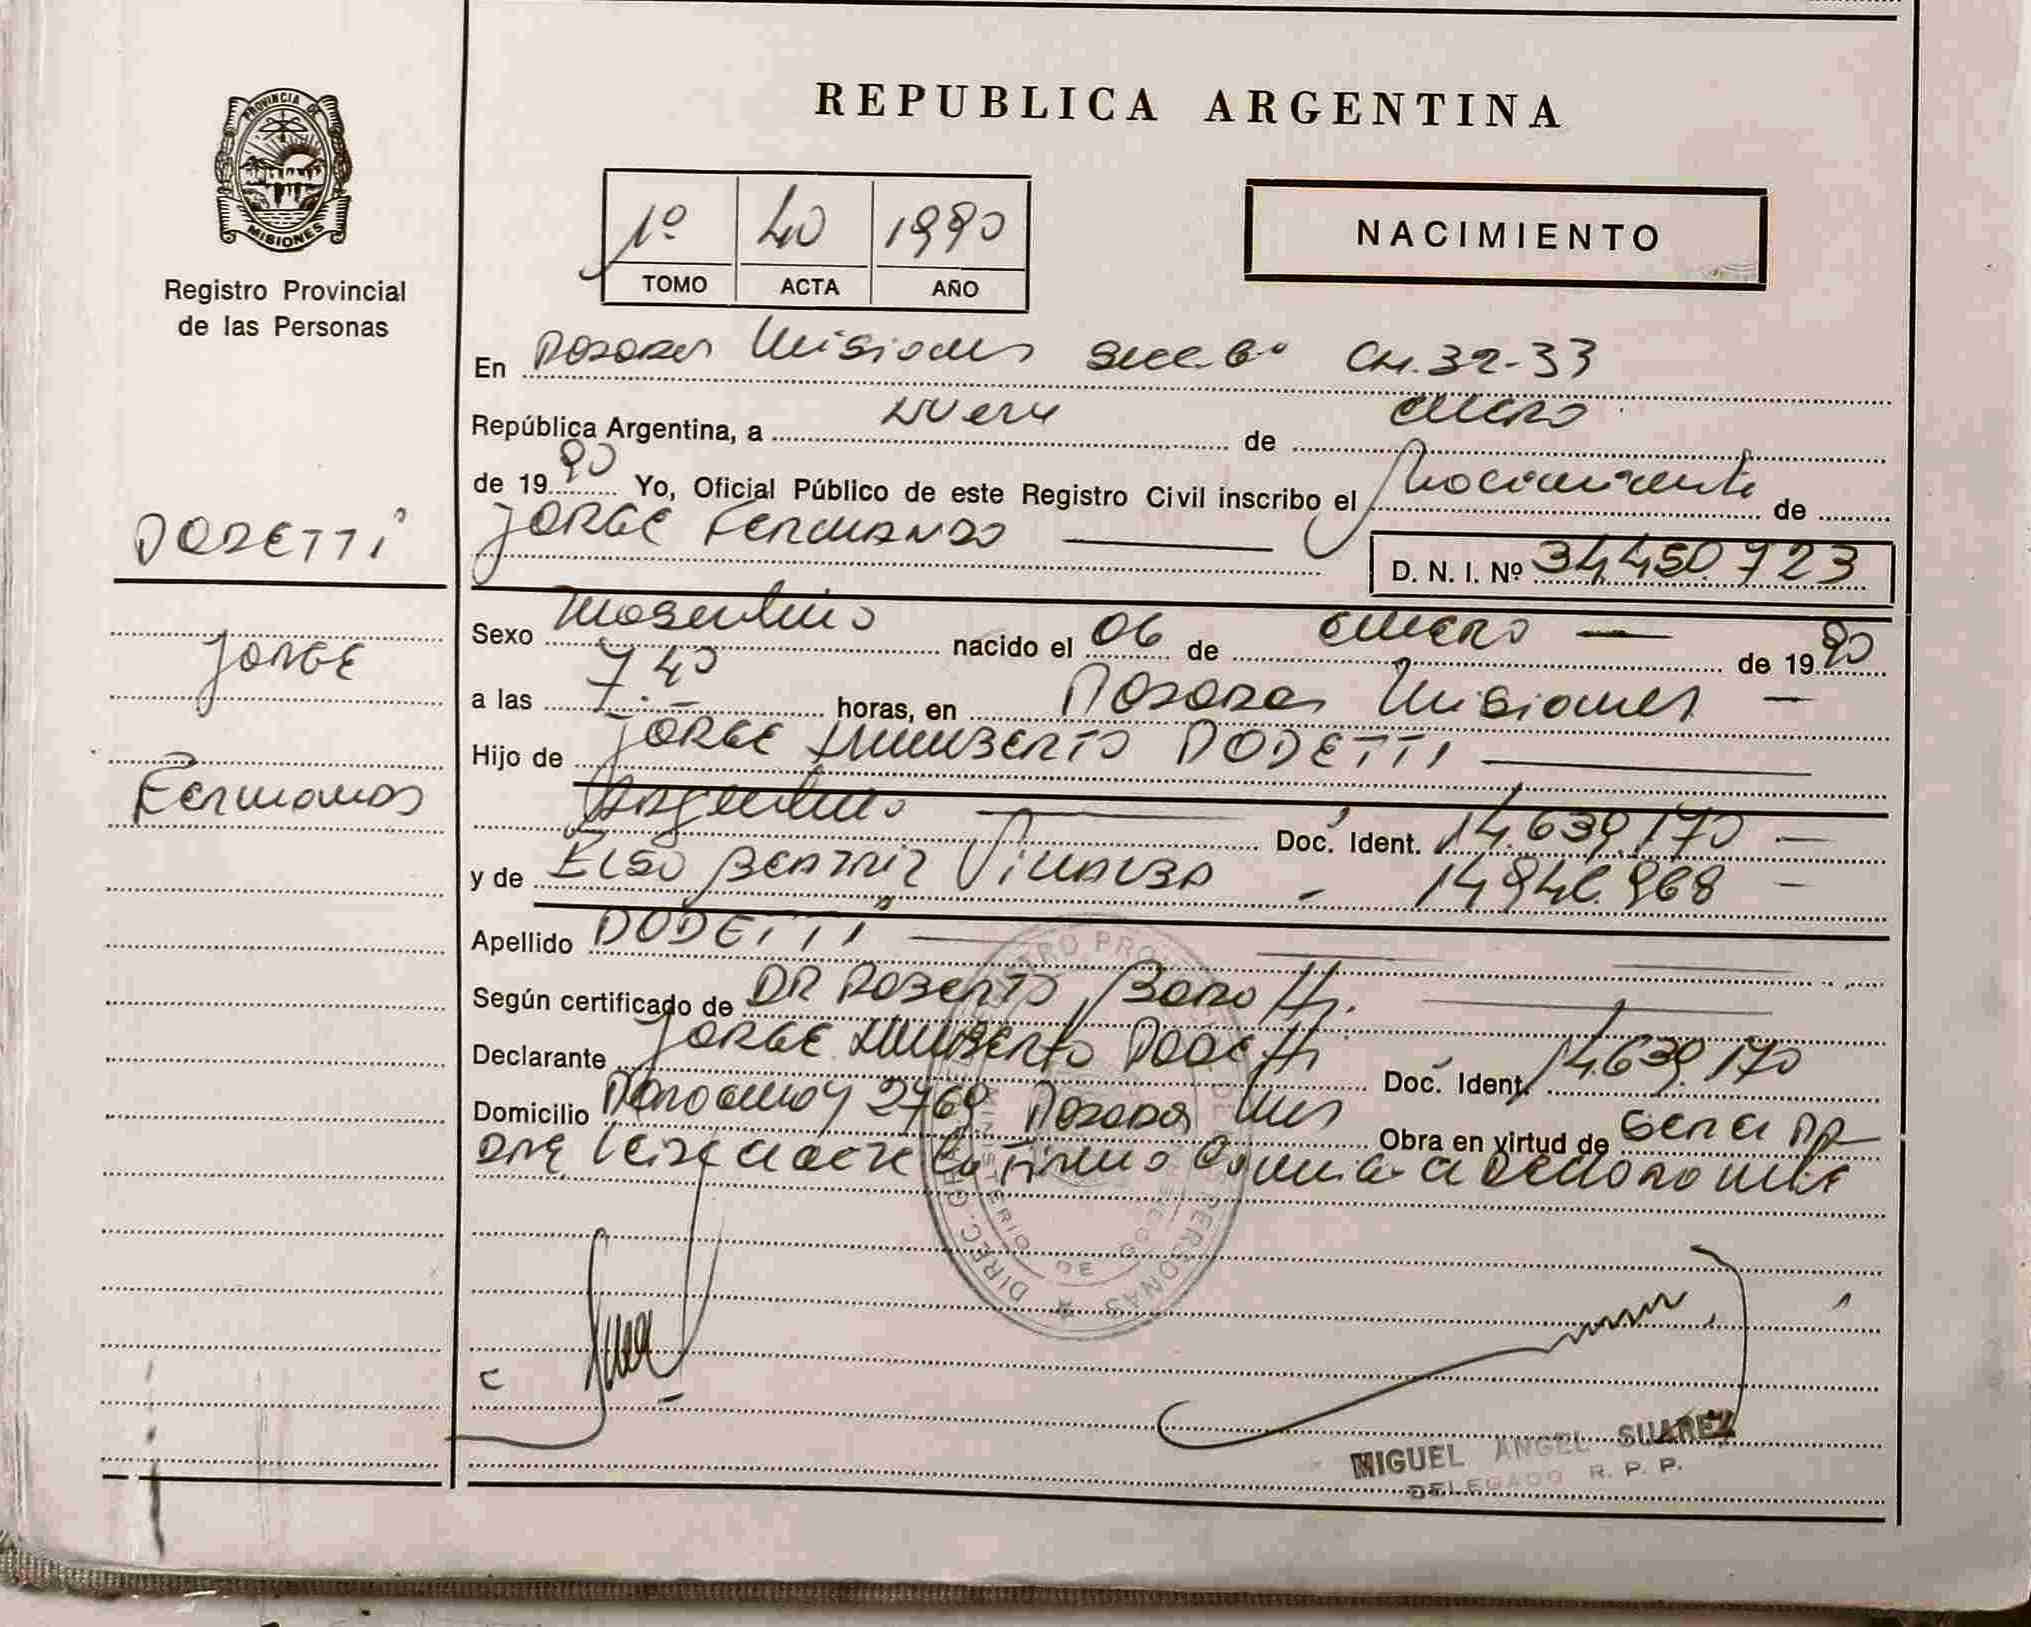 PROVINCIA DE
MISIONES
Registro Provincial
de las Personas
DODETTI
JORGE
Fernando
REPUBLICA ARGENTINA
1º 40 1990
TOMO ACTA AÑO
NACIMIENTO
En Posadas Misiones Secc. 6ª CH. 32-33
República Argentina, a nueve de enero
de 1990 Yo, Oficial Público de este Registro Civil inscribo el Nacimiento de
JORGE Fernando D. N. I. Nº 34.450.723
Sexo Masculino nacido el 06 de enero de 1990
a las 7.40 horas, en Posadas Misiones
Hijo de JORGE HUMBERTO DODETTI
Argentino Doc. Ident. 14.639.170
y de ELSA BEATRIZ VILLALBA - 14.946.968
Apellido DODETTI
Según certificado de DR ROBERTO
Declarante JORGE HUMBERTO DODETTI Doc. Ident. 14.639.170
Domicilio 2769 Posadas Mnes Obra en virtud de
firma
MIGUEL ANGEL SUAREZ
DELEGADO R. P. P.